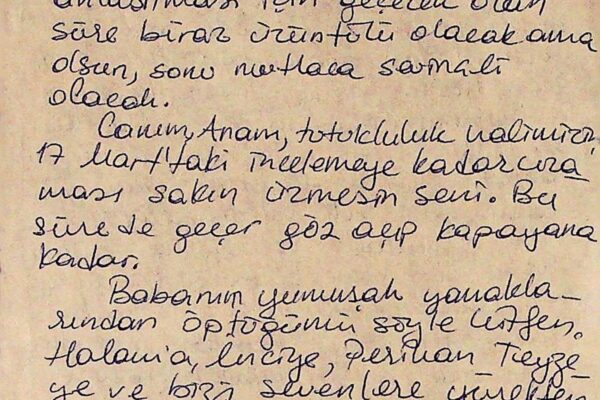 anlaşılması için geçecek olan
süre biraz üzüntülü olacak ama
olsun, sonu mutlaca sevinçli
olacak.
Canım, Anam, tutukluluk halimizi
17 Mart'taki incelemeye kadar uza
ması sakın üzmesin seni. Bu
sürede geçer göz açıp kapayana
kadar.
Babamın yumuşak yanakla-
rından öptüğümü söyle lütfen.
Halama, İnciye, Perihan Teyze
ye ve bizi sevenlere yürekten